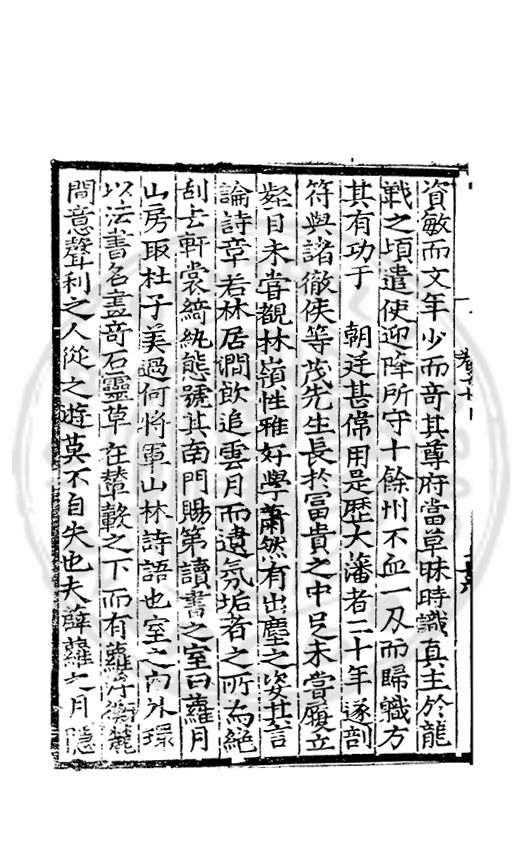 資敏而文年少而竒其尊府當草昧時識真主於龍
戰之頃遣使迎降所守十餘州不血一刃而歸職方
其有功于　朝廷甚偉用是歷大藩者二十年遂剖
符與諸徹侯等茂先生長於冨貴之中足未嘗履丘
壑目未嘗覩林嶺性雅好學蕭然有出塵之姿其言
論詩章若林居澗飲追雲月而遺氛垢者之所為絶
刮去軒裳綺紈態號其南門賜第讀書之室曰蘿月
山房取杜子美過何將軍山林詩語也室之內外環
以法書名畫竒石靈草在輦轂之下而有蘿洢衡麓
間意聲利之人從之遊莫不自失也夫薜蘿之月隱